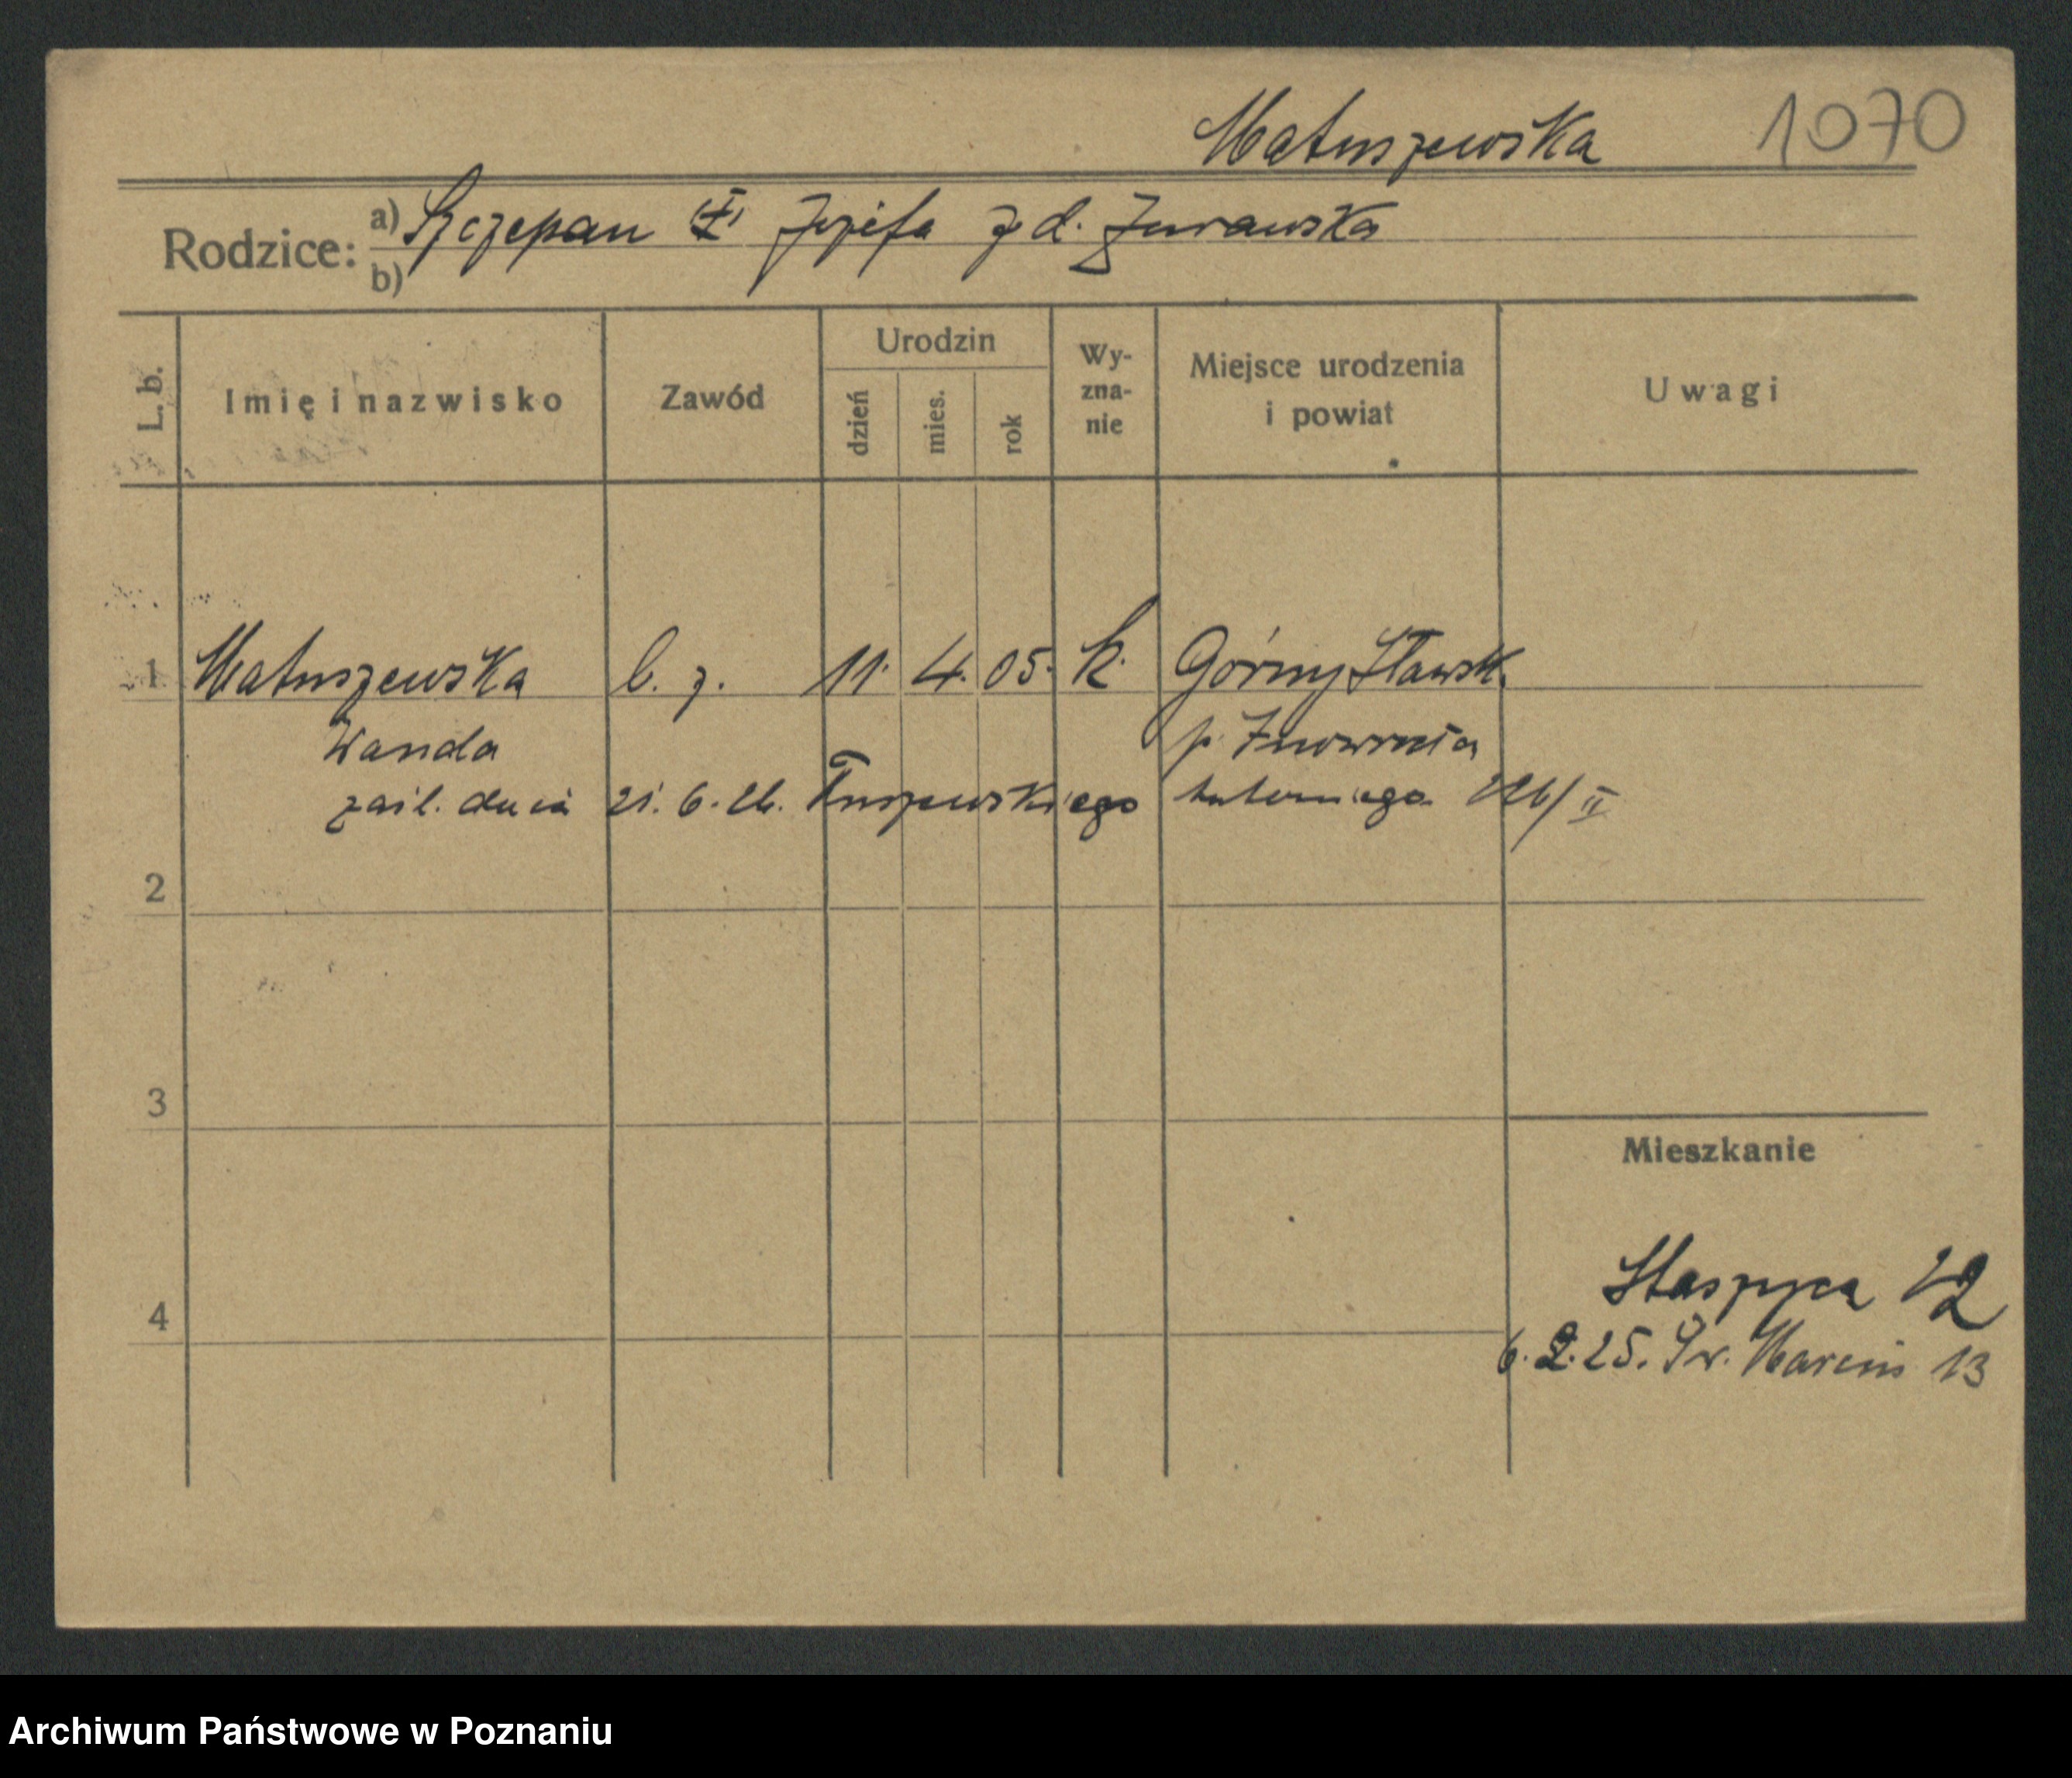 Matuszewska 1070
Rodzice: a) Szczepan Józefa z d. Żurawska
b)
L. b.
Imię i nazwisko
Zawód
Urodzin
dzień
mies.
rok
Wy-
zna-
nie
Miejsce urodzenia
i powiat
Uwagi
1 Matuszewska b. z. 11. 4. 05. k. Górny
Wanda p.
zaśl. dnia 21. 6. 26. Tuszewskiego tutejszego II
2
3
Mieszkanie
Staszyca 22
4
6. 2. 25. Św. Marcin 13
Archiwum Państwowe w Poznaniu